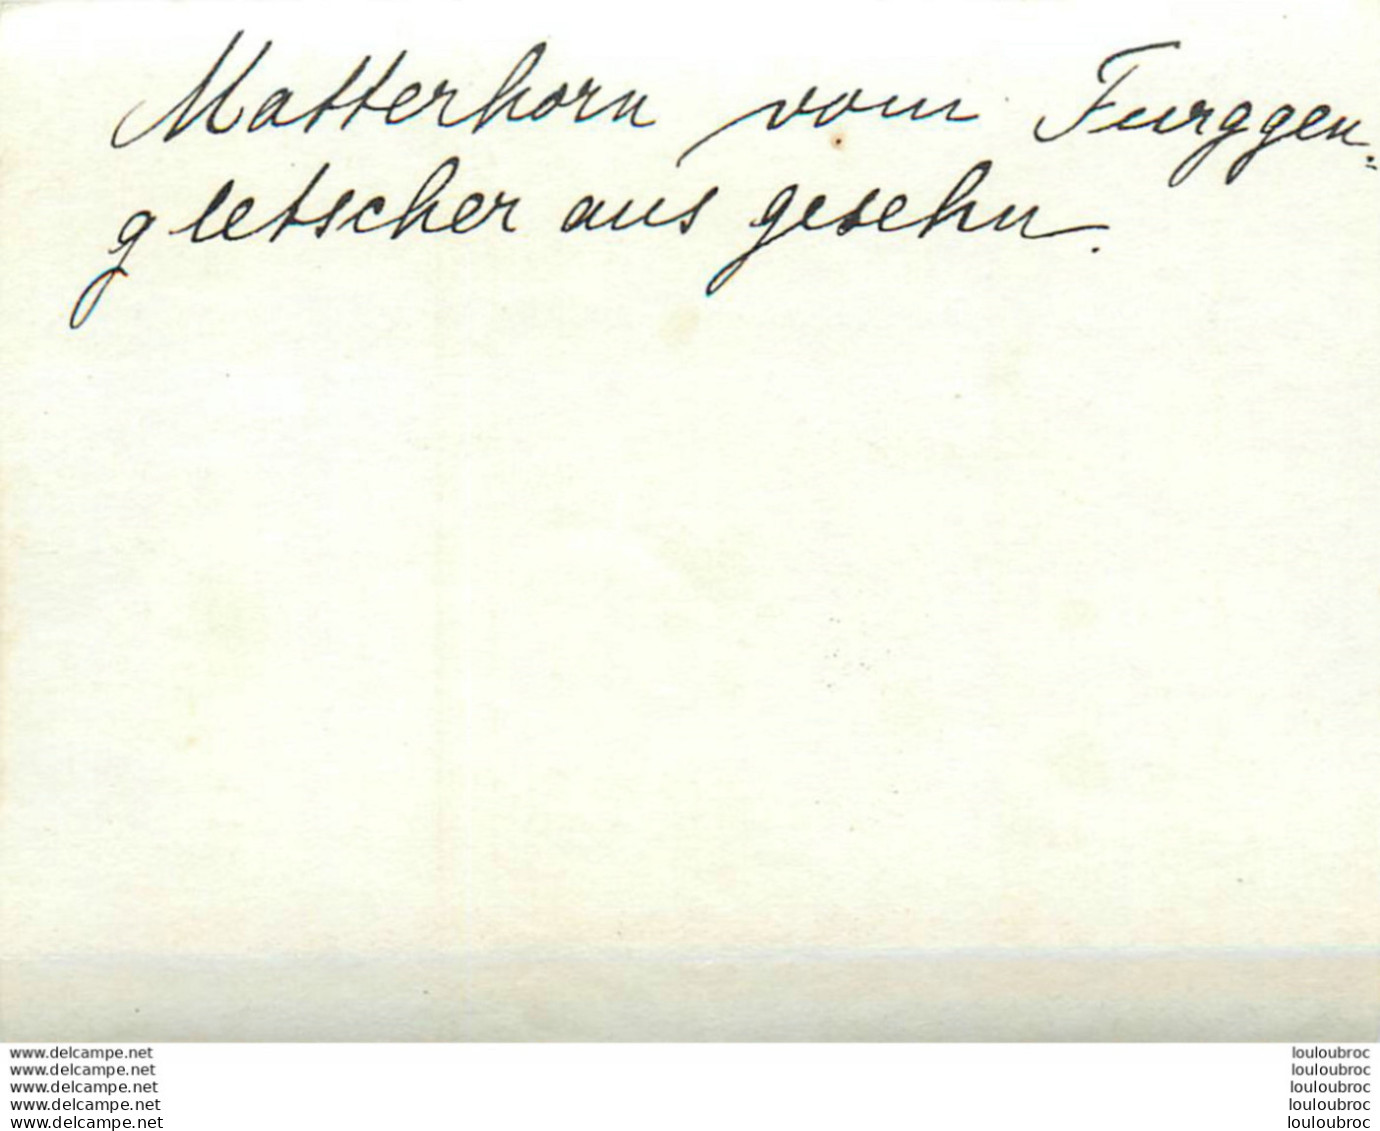 Matterhorn vom Furggen=
gletscher aus gesehn.
www.delcampe.net
www.delcampe.net
www.delcampe.net
www.delcampe.net
www.delcampe.net
louloubroc
louloubroc
louloubroc
louloubroc
louloubroc